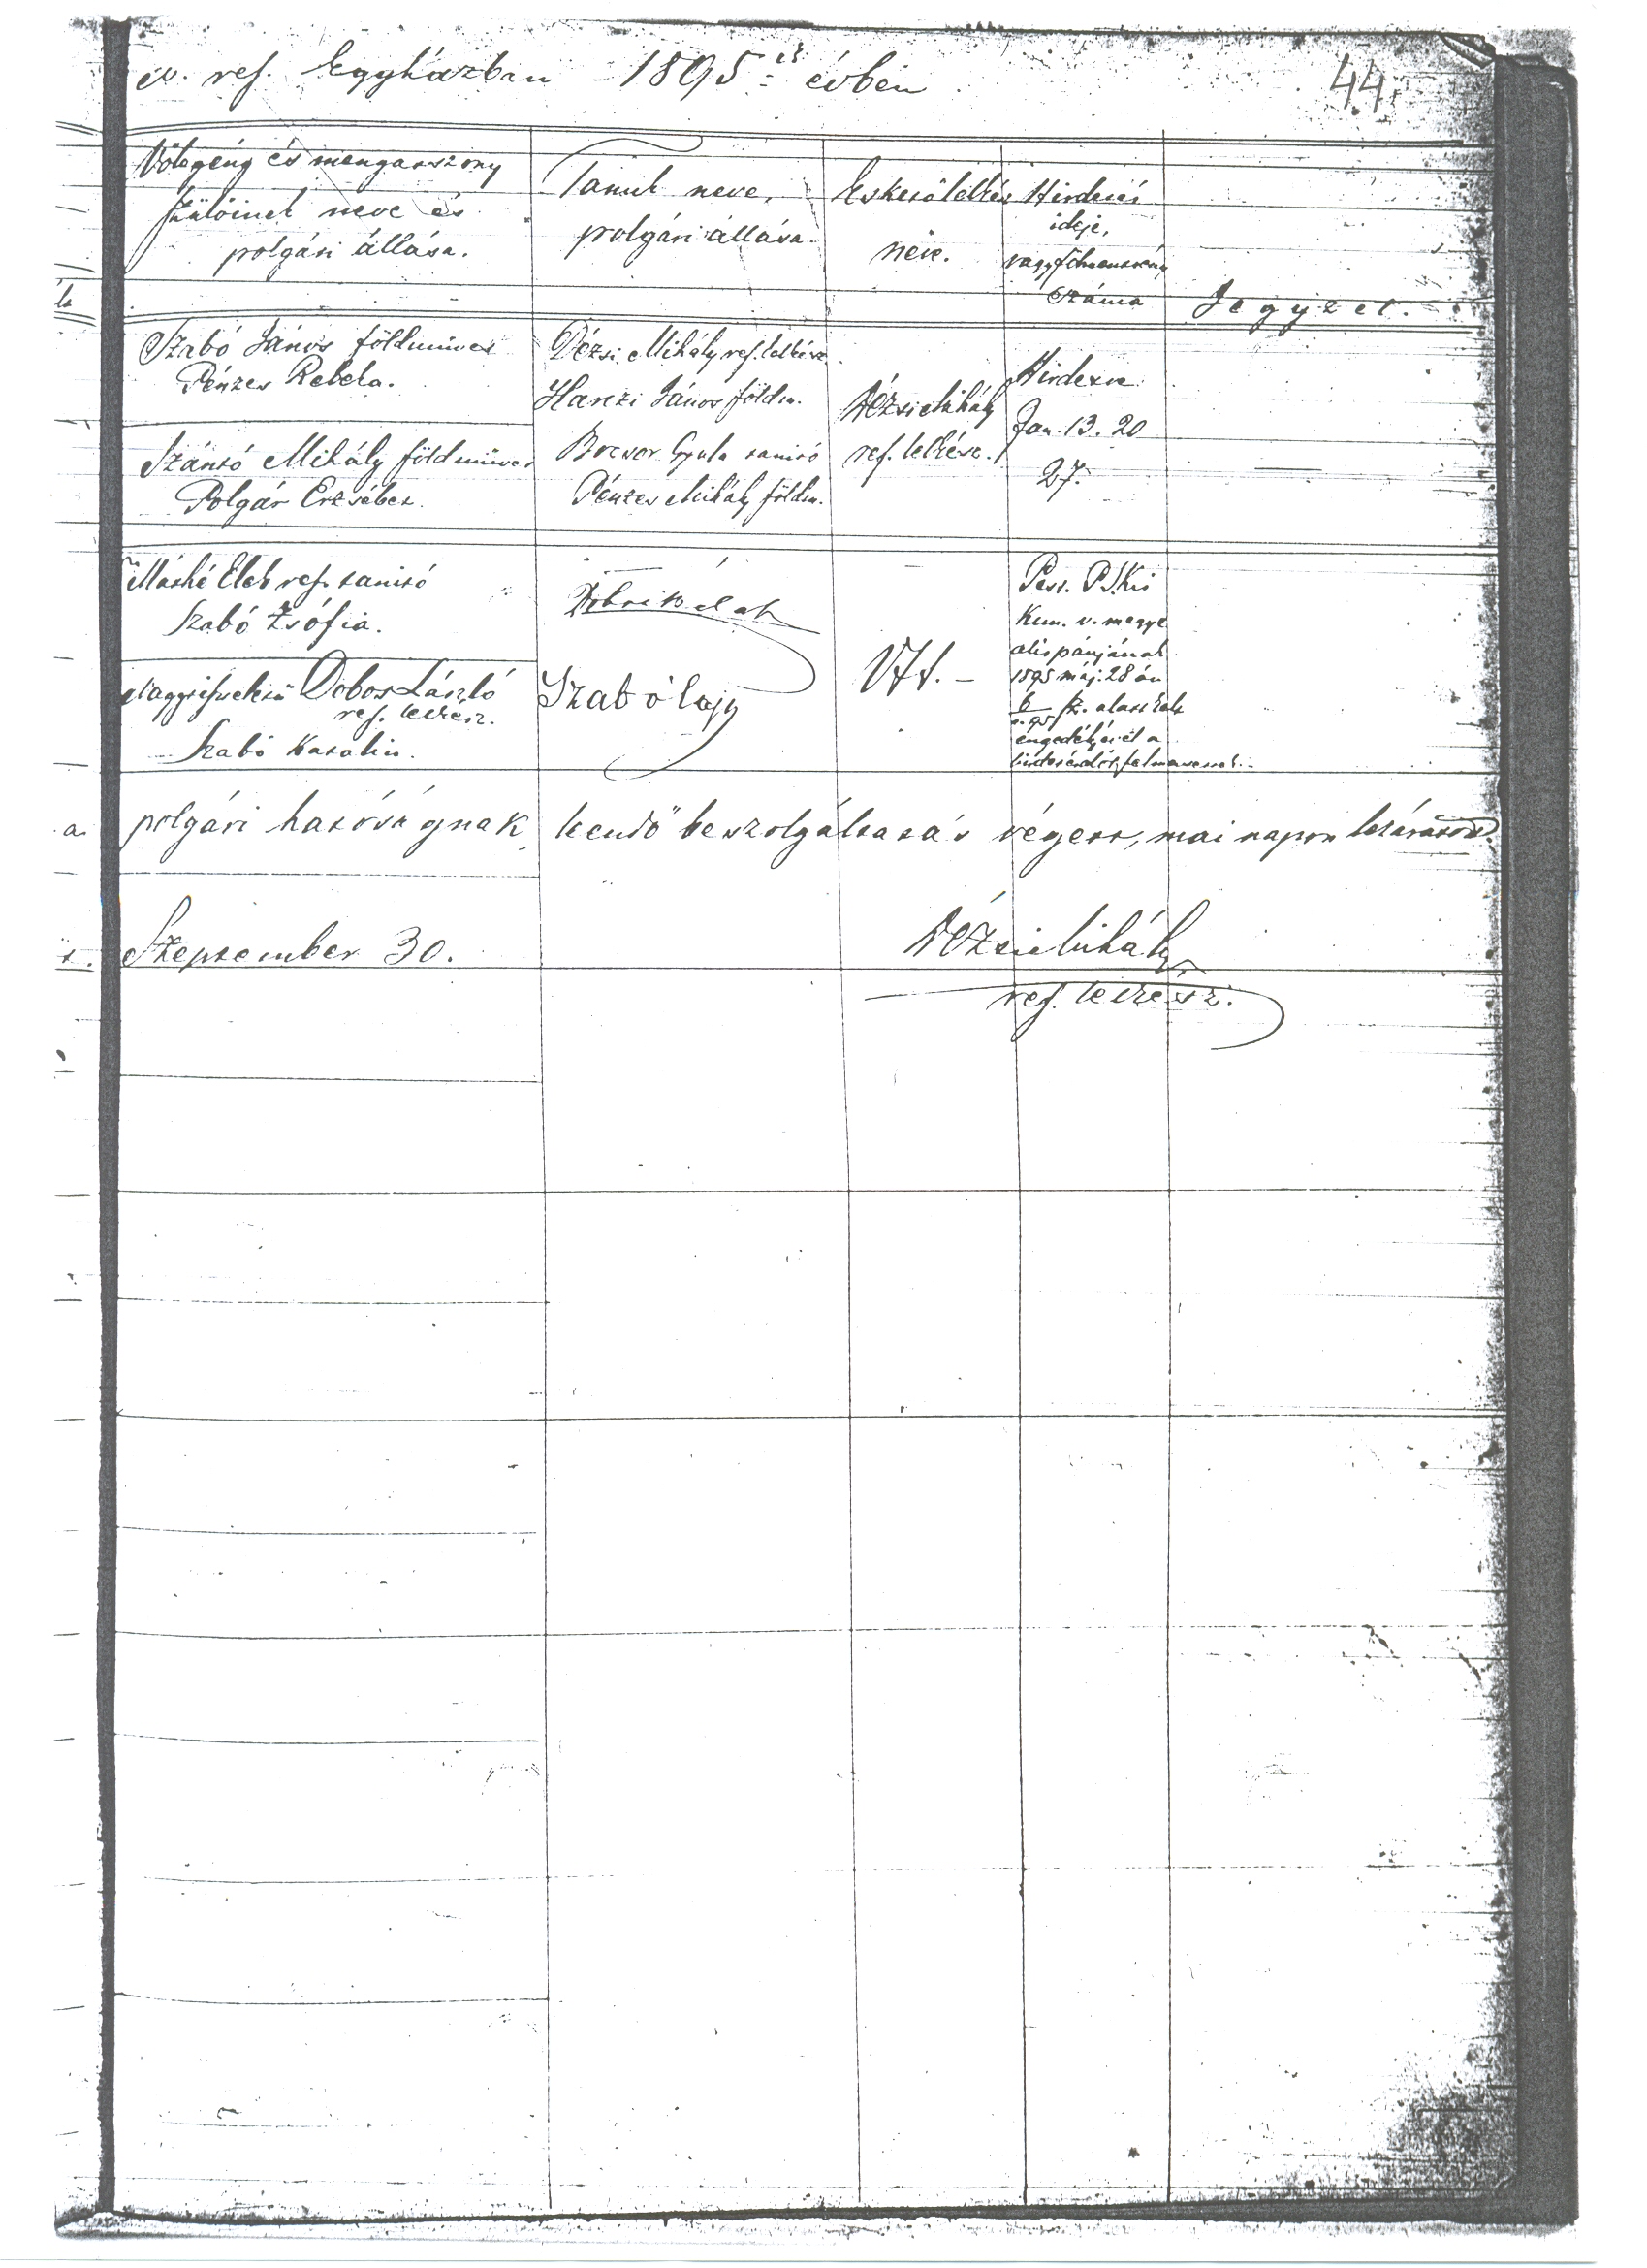 ev. ref. Egyházban 1895-ik évben
44.
Vőlegény és menyasszony
szülőinek neve és
polgári állása.
Tanuk neve,
polgári állása.
Eskető lelkész
neve.
Hirdetés
ideje,
vagy fölmentvény
száma
Jegyzet.
Szabó János földmüves
Pénzes Rebeka.
Szántó Mihály földmüves
Polgár Erzsébet.
Dézsi Mihály ref. lelkész
Hanzi János földm.
Gyula tanitó
Pénzes Mihály földm.
Dézsi Mihály
ref. lelkész.
Hirdetve
Jan. 13. 20
27.
Máthé Elek ref. tanitó
Szabó Zsófia.
Dobos László
ref. lelkész.
Szabó Katalin.
Szabó Lajos
Pest. P. S. Kis
Kun. v. megye
alispánjának
1895 máj. 28 án
6 sz. alatt kelt
engedélyével a
hirdetés alól felmentetnek.
a polgári hatóságnak leendő beszolgáltatás végett, mai napon lezáratott.
Szeptember 30.
Dézsi Mihály
ref. lelkész.